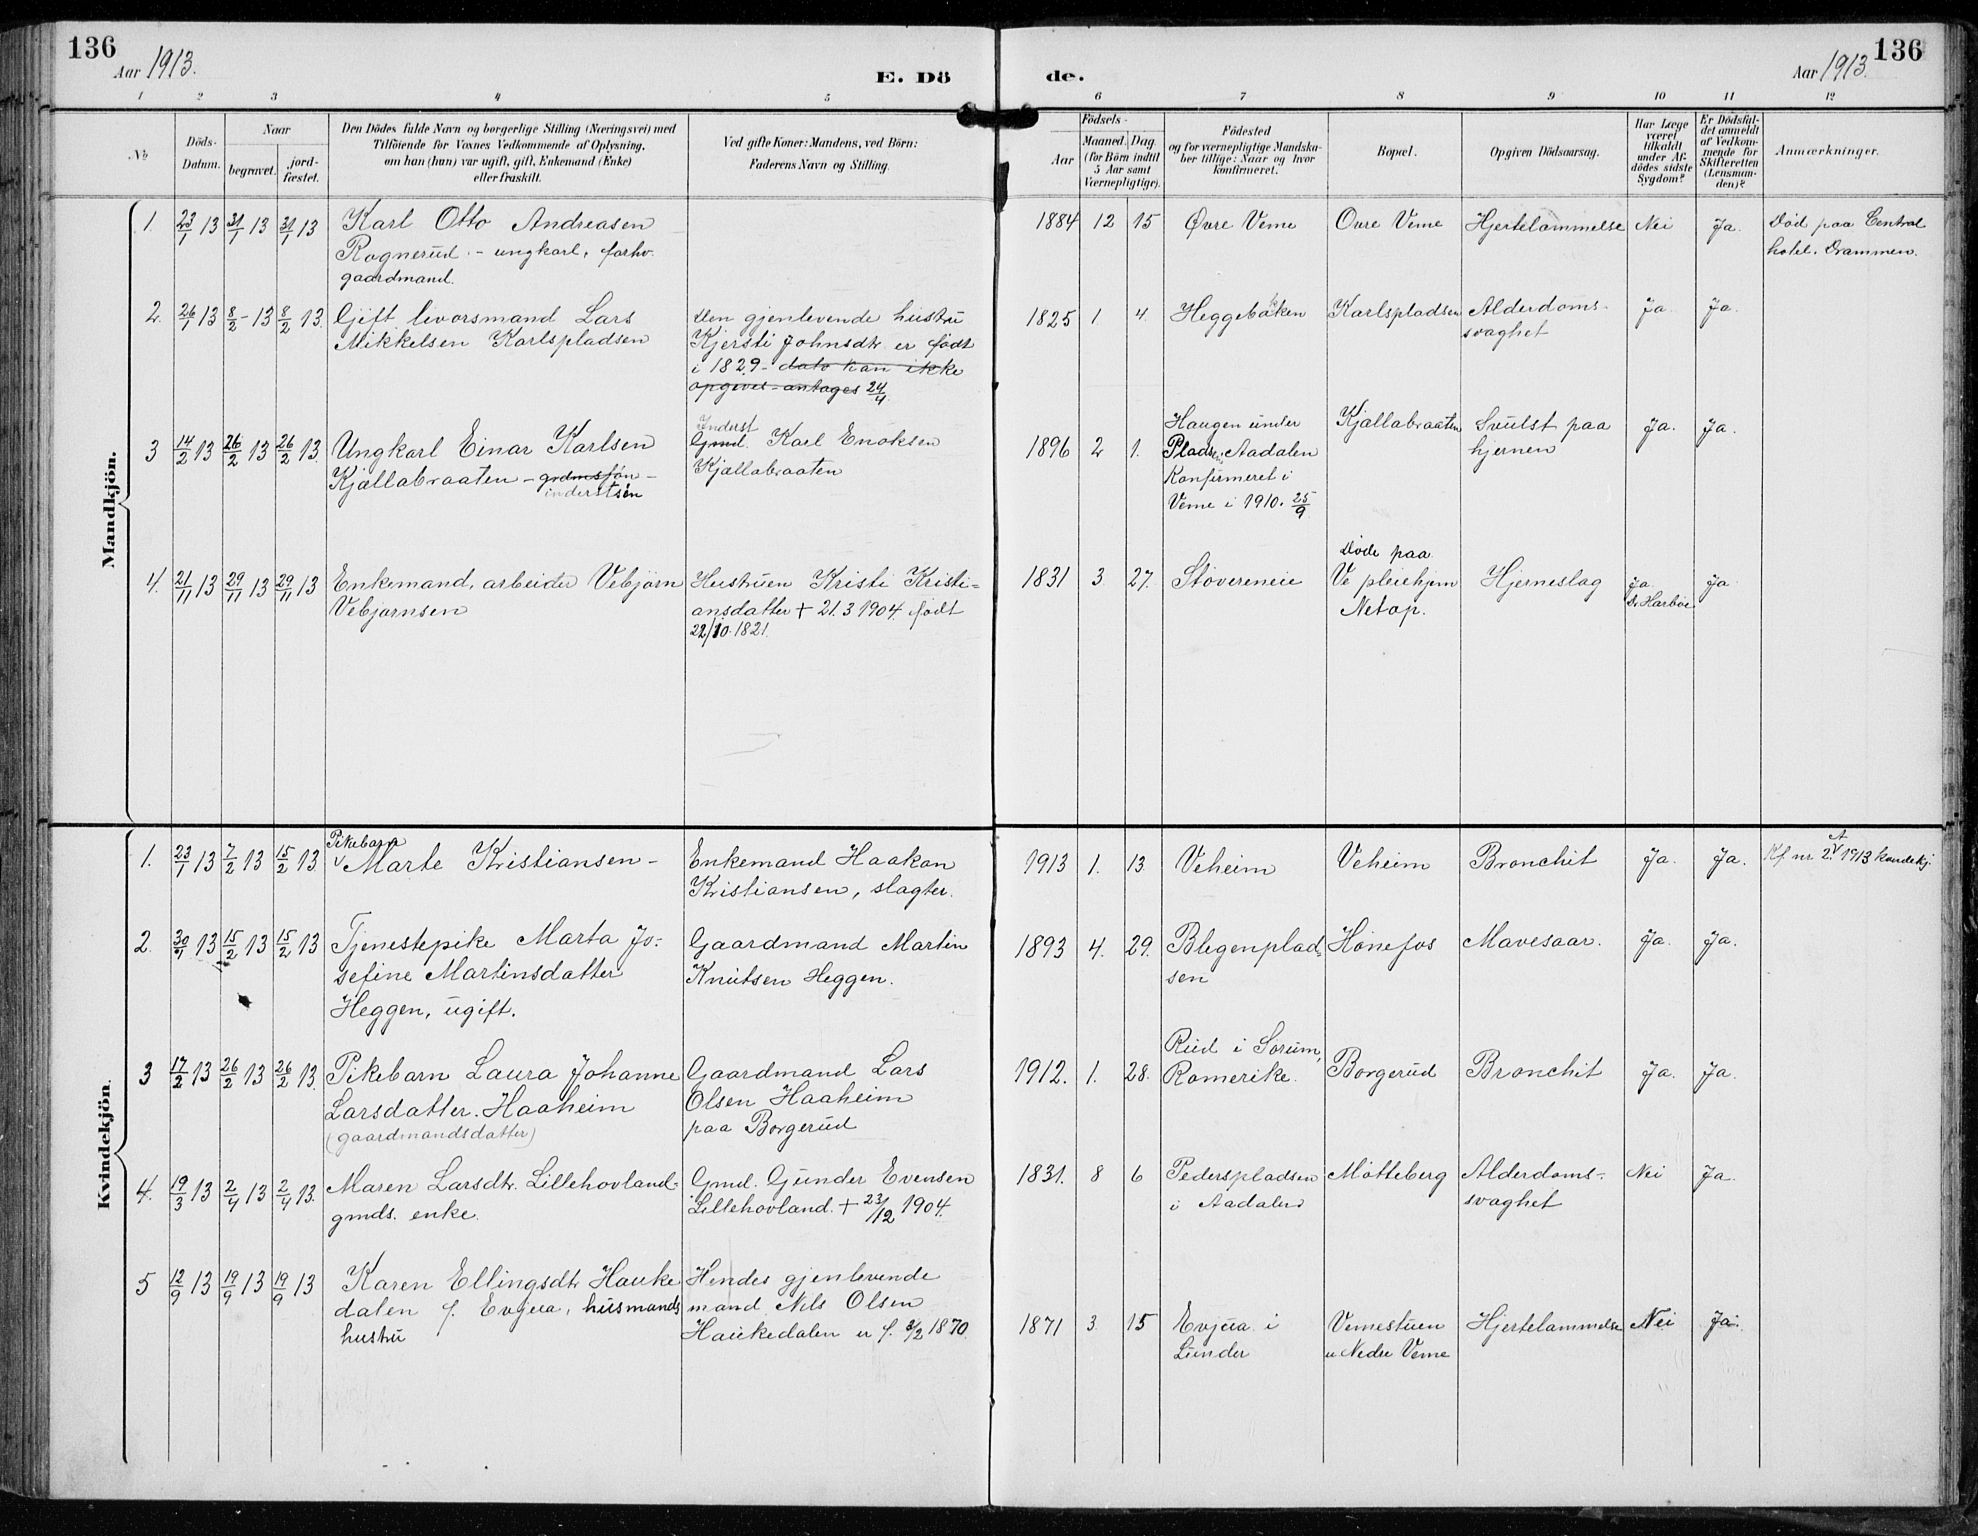 136
Aar 1913.
E. Dö de.
Aar 1913.
136
1 2 3 4 5 6 7 8 9 10 11 12
No
Döds-
Datum.
Naar
begravet.
jord-
fæstet.
Den Dödes fulde Navn og borgerlige Stilling (Næringsvei) med
Tilföiende for Voxnes Vedkommende af Oplysning,
om han (hun) var ugift, gift, Enkemand (Enke)
eller fraskilt.
Ved gifte Koner: Mandens, ved Börn:
Faderens Navn og Stilling.
Födsels-
Aar
Maaned.
Dag.
(for Börn indtil
5 Aar samt
Værnepligtige).
Födested
og for værnepligtige Mandska-
ber tillige: Naar og hvor
konfirmeret.
Bopæl.
Opgiven Dödsaarsag.
Har Læge
været
tilkaldt
under Af-
dödes sidste
Sygdom?
Er Dödsfal-
det anmeldt
af Vedkom-
mende for
Skifteretten
(Lensman-
den)?
Anmærkninger.
Mandkjön.
1. 23/1 13 31/1 13 31/1 13 Karl Otto Andreasen
Rognerud - ungkarl, forhv.
gaardmand.
1884 12 15 Øvre Veme Ovre Veme Hjertelammelse Nei Ja. Död paa Central
hotel. Drammen.
2. 26/1 13 8/2 - 13 8/2 13. Gift livorsmand Lars
Mikkelsen Karlspladsen
Den gjenlevende hustru
Kjersti Johnsdtr er født
i 1829 - dato kan ikke
opgives - antages 24/4.
1825 1. 4. Heggebakken Karlspladsen Alderdoms-
svaghet Ja. Ja.
3 14/2 13 26/2 13 26/2 13. Ungkarl Einar Karlsen
Kjællabraaten - grdmssøn -
inderstsøn
Inderst
Gmd. Karl Enoksen
Kjællabraaten
1896 2 1. Haugen under
Pladsen i Aadalen
Konfirmeret i
Veme i 1910. 25/9
Kjællabraaten Svulst paa
hjernen Ja. Ja.
4. 21/11 13 29/11 13 29/11 13 Enkemand, arbeider Vebjørn
Vebjørnsen
Hustruen Kristi Kristi=
ansdatter + 21.3 1904. født
22/10. 1821.
1831 3. 27. Støvereneie Døde paa
Ve pleiehjem
Netop.
Hjerneslag Ja.
Dr. Harboe Ja.
Kvindekjön.
1. 23/1 13 7/2 13 15/2 13. Pikebarn
v Marte Kristiansen -
Enkemand Haakon
Kristiansen, slagter.
1913 1. 13. Veheim Veheim Bronchit Ja. Ja. Kf nr 2. A 1913 kvindekj.
2. 30/1 13 15/2 13 15/2 13 Tjenestepike Marta Jo=
sefine Martinsdatter
Heggen, ugift.
Gaardmand Martin
Knutsen Heggen.
1893 4. 29. Blegenplad=
sen Hønefos Mavesaar. Ja. Ja.
3 17/2 13 26/2 13 26/2 13. Pikebarn Laura Johanne
Larsdatter. Haaheim
(gaardmandsdatter)
Gaardmand Lars
Olsen Haaheim
paa Borgerud
1912. 1. 28. Rud i Sorum,
Romerike. Borgerud Bronchit Ja. Ja.
4. 19/3 13 2/4 13 2/4 13. Maren Larsdtr. Lillehovland-
gmds. enke.
Gmd. Gunder Evensen
Lillehovland. + 23/12 1904.
1831. 8 6 Pederspladsen
i Aadalen Motteberg Alderdoms-
svaghet Nei Ja.
5 12/9 13 19/9 13 19/9 13 Karen Ellingsdtr Hauke
dalen f. Evjua, husmands
hustru
Hendes gjenlevende
mand Nils Olsen
Haukedalen er f. 8/2 1870.
1871 3 15 Evjua i
Lunder Vemestuen
u Nedre Veme Hjertelammelse Nei Ja.